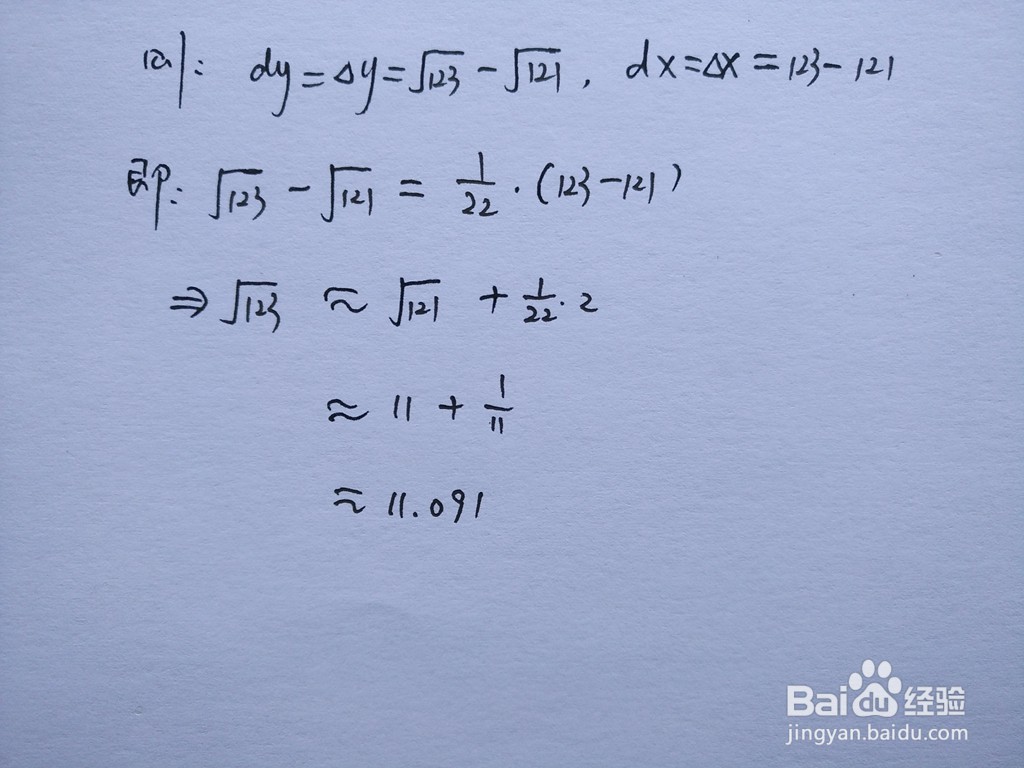 则: dy=Δy=√123-√121, dx=Δx=123-121
即: √123-√121=1/22·(123-121)
⇒√123≈√121+1/22·2
≈11+1/11
≈11.091
Bai du 经验
jingyan.baidu.com